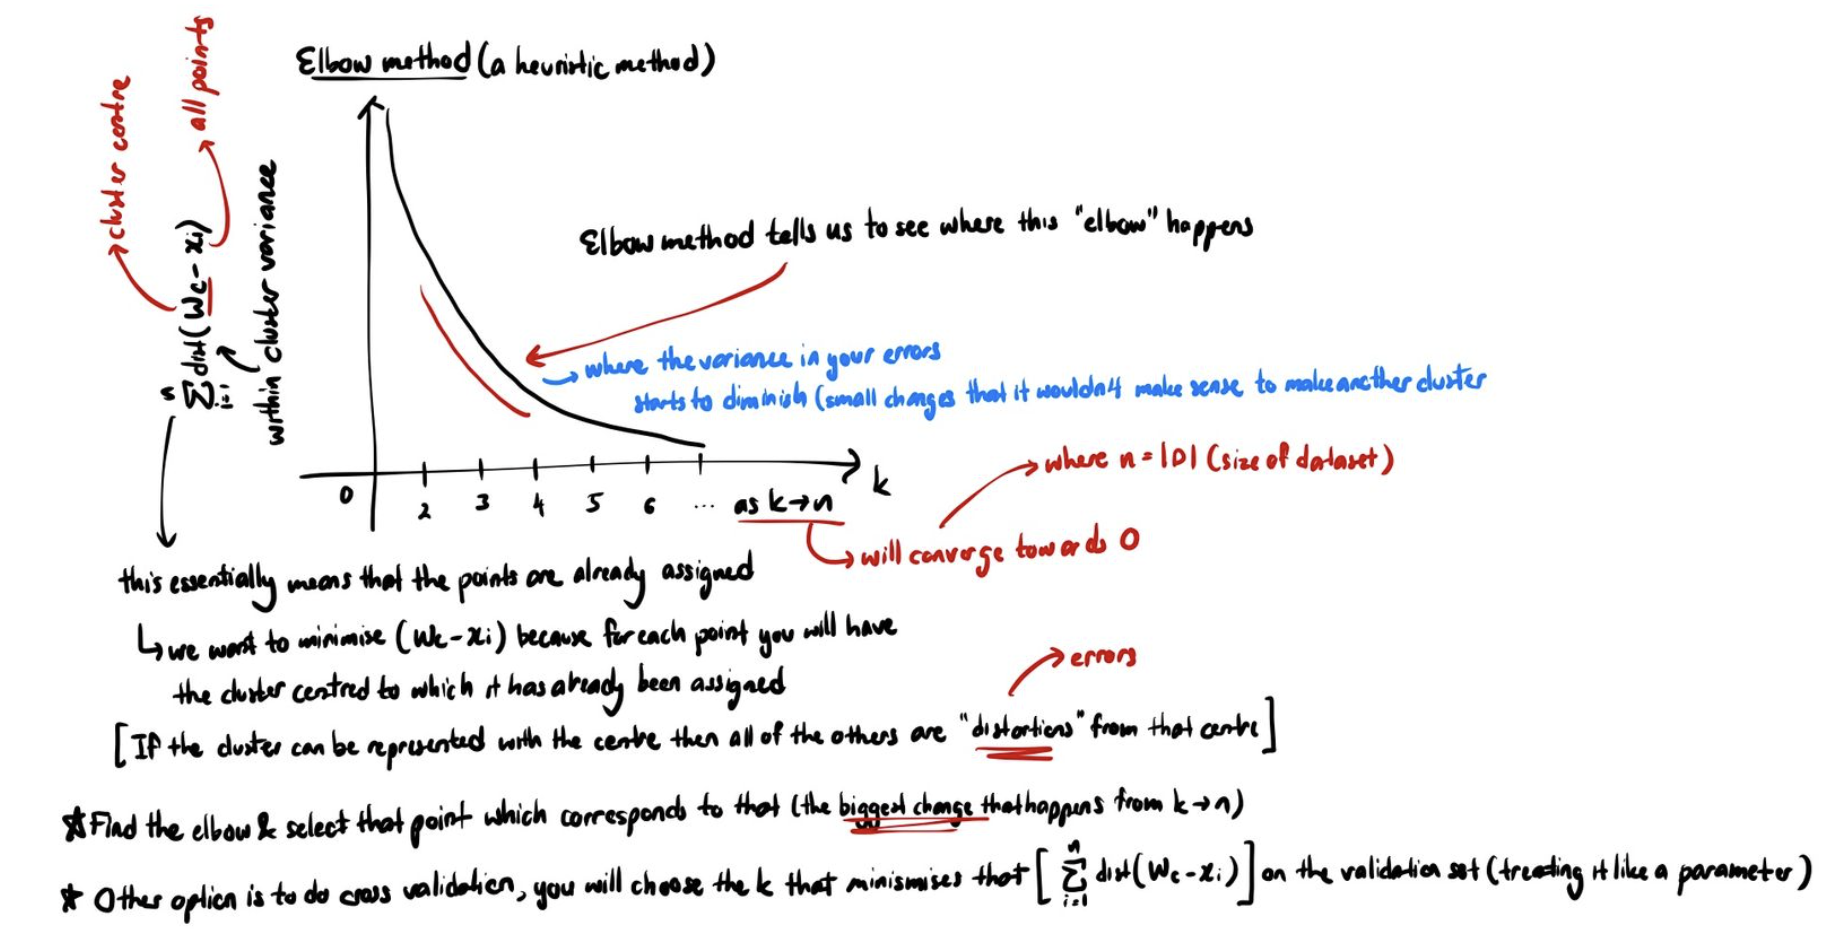 Elbow method (a heuristic method)
cluster centre
all points
n Σ i=1 dist(Wc - xi)
within cluster variance
Elbow method tells us to see where this "elbow" happens
where the variance in your errors
starts to diminish (small changes that it wouldn't make sense to make another cluster
0 2 3 4 5 6 ... as k→n
k
where n = |D| (size of dataset)
will converge towards 0
this essentially means that the points are already assigned
we want to minimise (Wc - xi) because for each point you will have
the cluster centred to which it has already been assigned
errors
[If the cluster can be represented with the centre then all of the others are "distortions" from that centre]
* Find the elbow & select that point which corresponds to that (the biggest change that happens from k→n)
* Other option is to do cross validation, you will choose the k that minismises that [ n Σ i=1 dist(Wc - xi) ] on the validation set (treating it like a parameter)